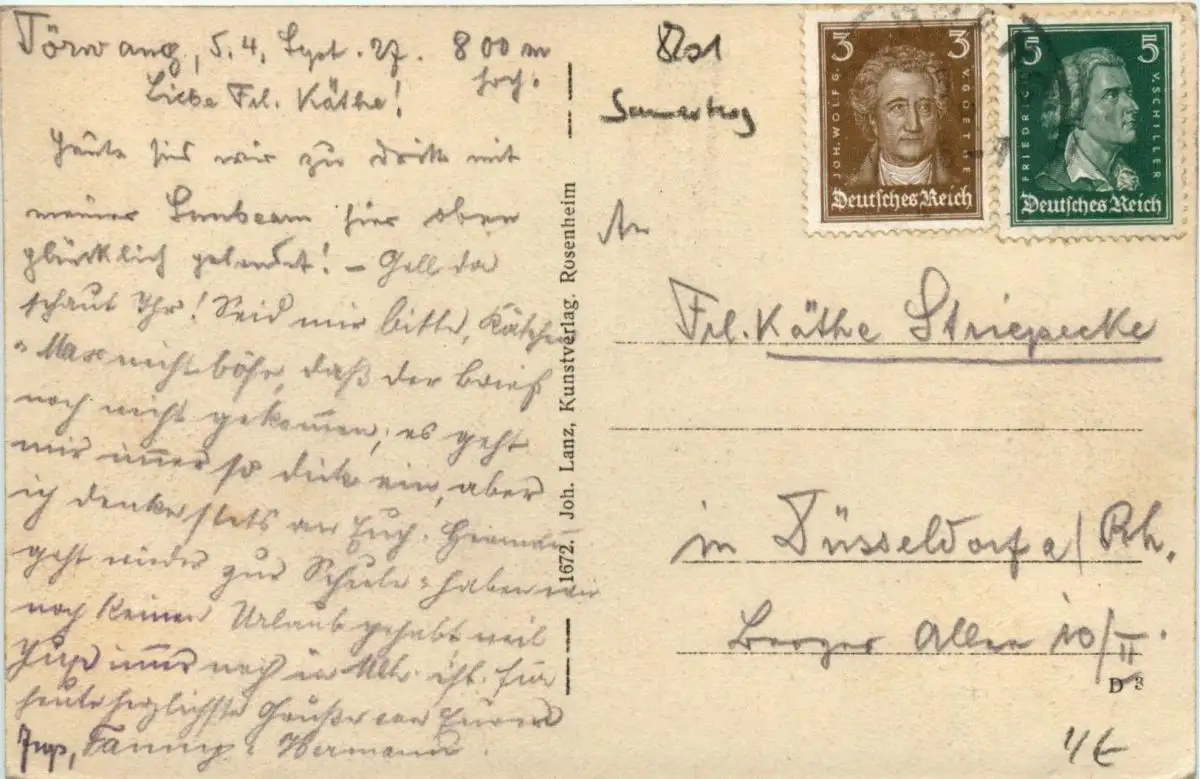 Törwang, 5.4. Sept. 27. 800 m
hoch.
Liebe Frl. Käthe!
Heute sind wir zu dritt mit
meiner Sunbeam hier oben
glücklich gelandet! – Gell da
schaut Ihr! Seid mir bitte, Kätchen
u. Max nicht böse, daß der Brief
noch nicht gekommen, es geht
mir immer so ein, aber
ich denke stets an Euch. Hermann
geht wieder zur Schule - haben wir
noch keinen Urlaub gehabt weil
Jup immer noch in ist. Für
heute herzlichste Grüße von Eurem
Jup, Fanny u. Hermann.
1672. Joh. Lanz, Kunstverlag, Rosenheim
Samerberg
3 3
JOH. WOLFG. V. GOETHE
Deutsches Reich
5 5
FRIEDRICH V. SCHILLER
Deutsches Reich
An
Frl. Käthe Striepecke
in Düsseldorf a/Rh.
Berger Allee 10/II.
D 3
1/€